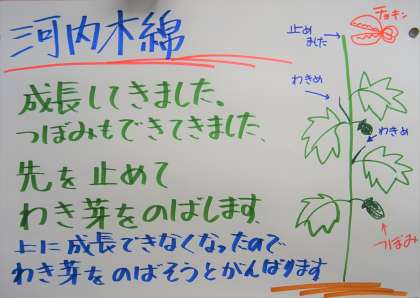 河内木綿
成長してきました。
つぼみもできてきました、
先を止めて
わき芽をのばします
上に成長できなくなったので
わき芽をのばそうとがんばります
チョキン
止め
ました
わきめ
わきめ
つぼみ